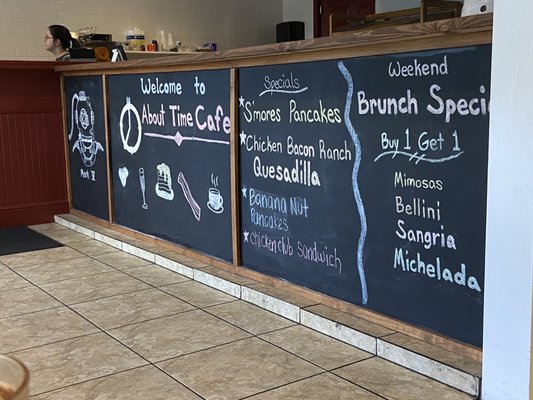 Mark V
Welcome to
About Time Cafe
Specials
S'mores Pancakes
Chicken Bacon Ranch
Quesadilla
Banana Nut
Pancakes
Chicken club Sandwich
Weekend
Brunch Speci
Buy 1 Get 1
Mimosas
Bellini
Sangria
Michelada